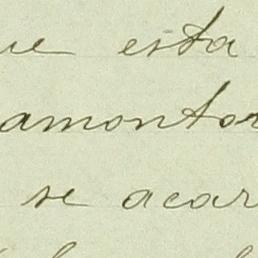 ue esta
amonto
se acar